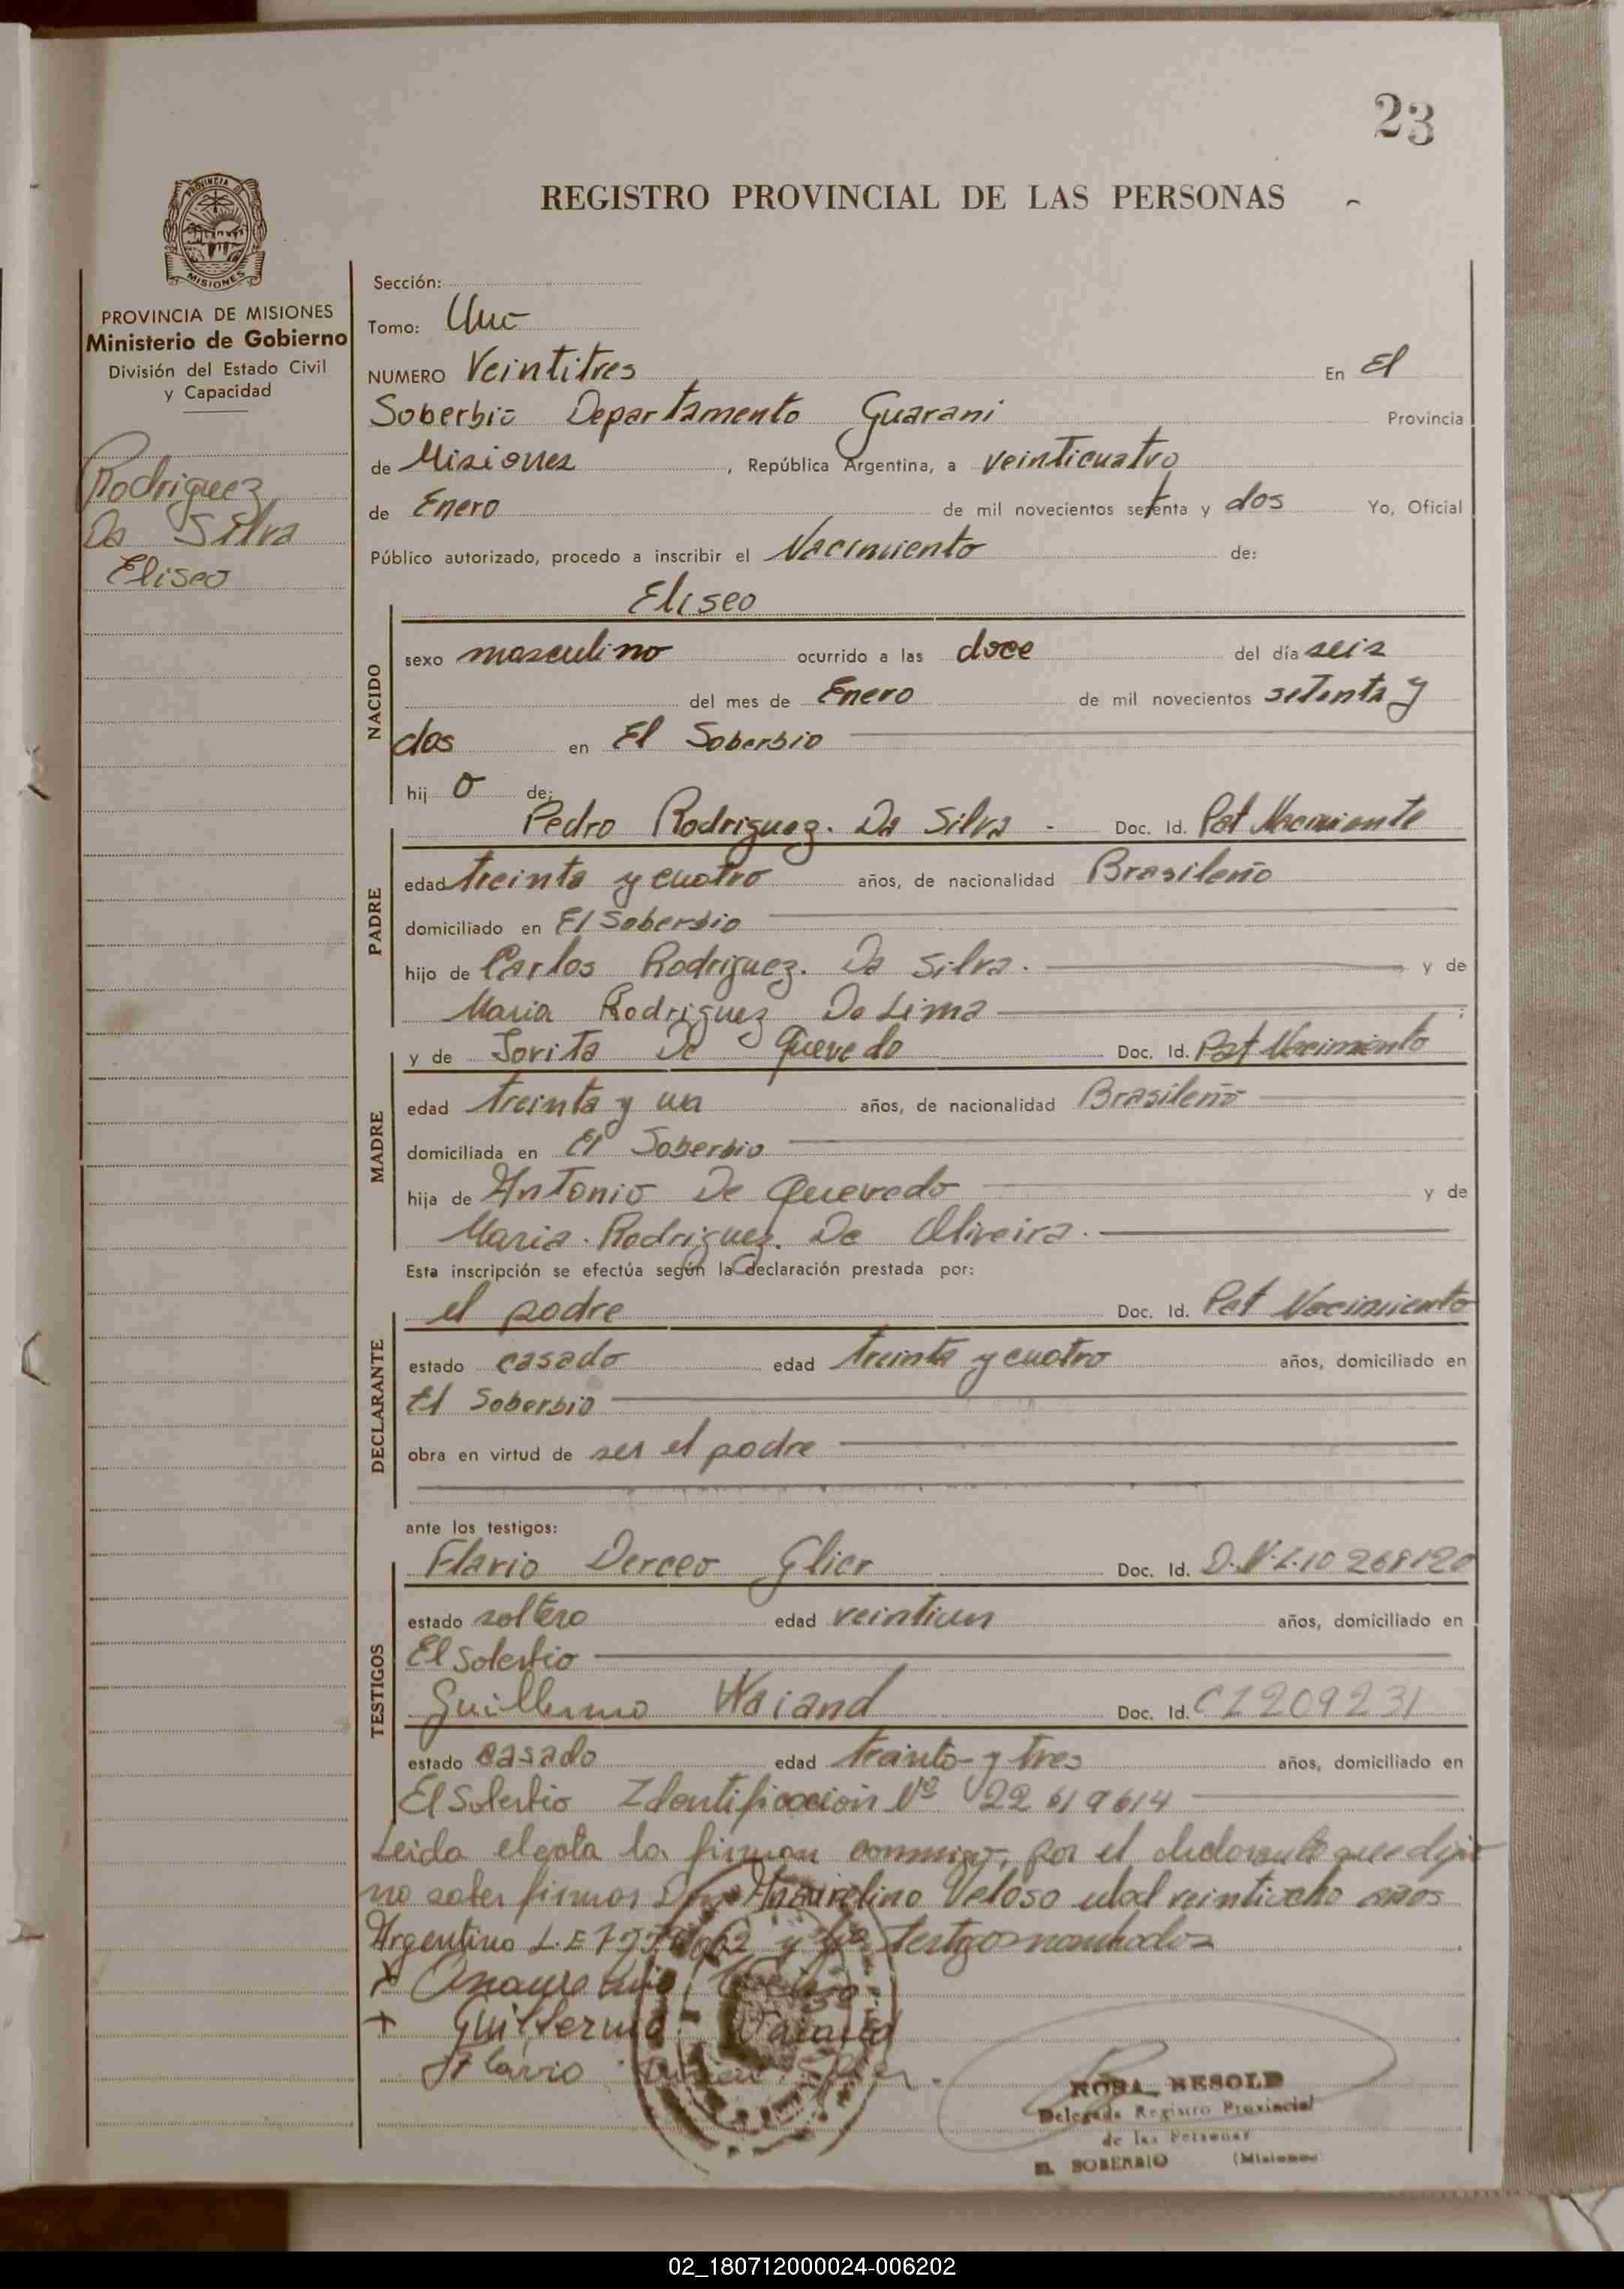 23
REGISTRO PROVINCIAL DE LAS PERSONAS
PROVINCIA DE MISIONES
PROVINCIA DE MISIONES
Ministerio de Gobierno
División del Estado Civil
y Capacidad
Rodriguez
Da Silva
Eliseo
Sección:
Tomo: Uno
NUMERO Veintitres En El
Soberbio Departamento Guarani Provincia
de Misiones, República Argentina, a veinticuatro
de Enero de mil novecientos setenta y dos Yo, Oficial
Público autorizado, procedo a inscribir el Nacimiento de:
Eliseo
NACIDO
sexo masculino ocurrido a las doce del día seis
del mes de Enero de mil novecientos setenta y
dos en El Soberbio
hij o de:
PADRE
Pedro Rodriguez. Da Silva - Doc. Id. Pat Nacimiento
edad treinta y cuatro años, de nacionalidad Brasileño
domiciliado en El Soberbio
hijo de Carlos Rodriguez. Da Silva. y de
Maria Rodriguez De Lima ;
MADRE
y de Jorita De Quevedo Doc. Id. Pat Nacimiento
edad treinta y un años, de nacionalidad Brasileño
domiciliada en El Soberbio
hija de Antonio De Quevedo y de
Maria. Rodriguez. De Oliveira.
Esta inscripción se efectúa según la declaración prestada por:
DECLARANTE
el padre Doc. Id. Pat Nacimiento
estado casado edad treinta y cuatro años, domiciliado en
El Soberbio
obra en virtud de ser el padre
ante los testigos:
TESTIGOS
Flavio Derceo Glier Doc. Id. D.N.I. 10 268120
estado soltero edad veintiun años, domiciliado en
El Soberbio
Guillermo Waiand Doc. Id. CI 209231
estado casado edad treinta y tres años, domiciliado en
El Soberbio Identificacion Nº 22 619614
Leida el acta la firman conmigo, por el declarante que dijo
no saber firmar Anaurelino Veloso edad veintiocho años
Argentino L.E y los testigos nombrados
x
+ Guilherme Waiand
Flavio
ROSA BESOLD
Delegada Registro Provincial
de las Personas
EL SOBERBIO (Misiones)
02_180712000024-006202